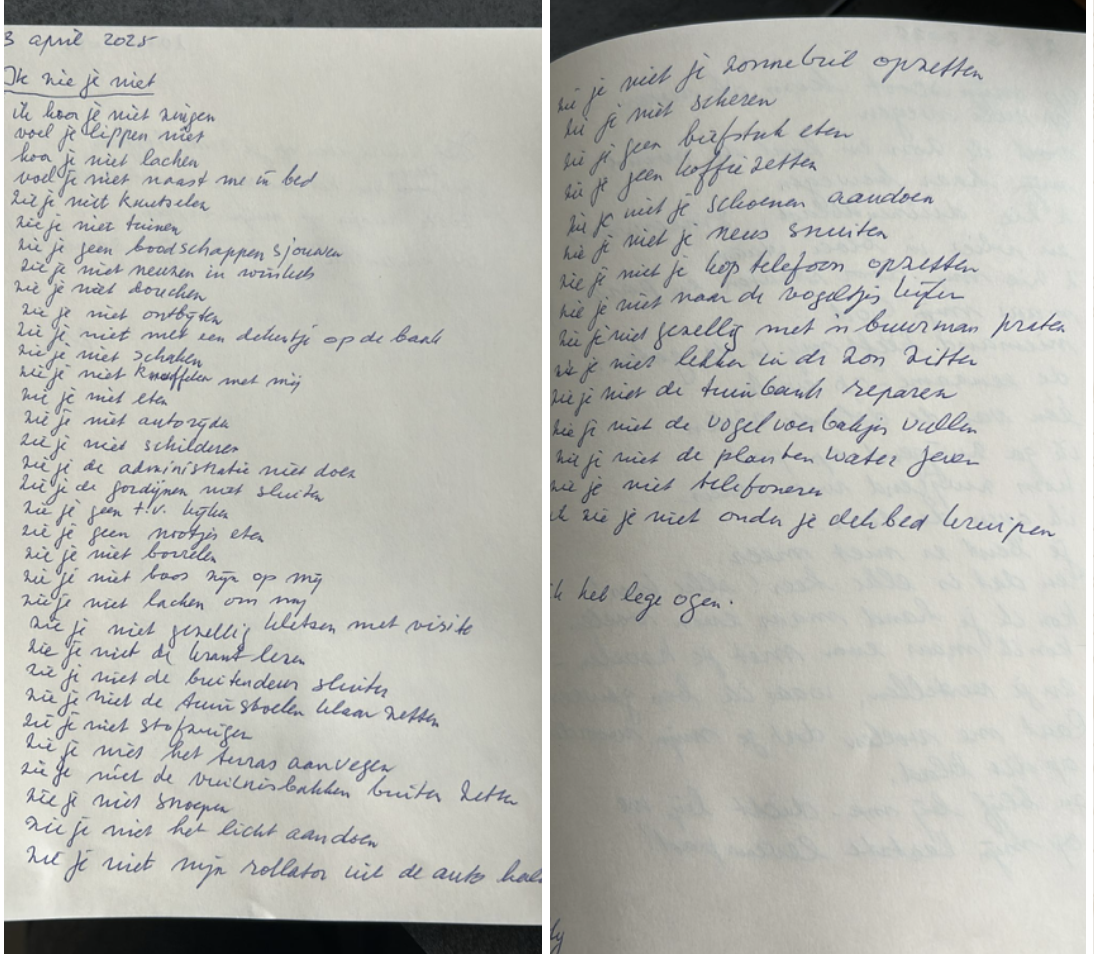 3 april 2025
Ik zie je niet
ik hoor je niet zingen
voel je lippen niet
hoor je niet lachen
voel je niet naast me in bed
zie je niet knutselen
zie je niet tuinen
zie je geen boodschappen sjouwen
zie je niet neuzen in winkels
zie je niet douchen
zie je niet ontbijten
zie je niet met een dekentje op de bank
zie je niet schaken
zie je niet knuffelen met mij
zie je niet eten
zie je niet autorijden
zie je niet schilderen
zie je de administratie niet doen
zie je de gordijnen niet sluiten
zie je geen t.v. kijken
zie je geen nootjes eten
zie je niet borrelen
zie je niet boos zijn op mij
zie je niet lachen om mij
zie je niet gezellig kletsen met visite
zie je niet de krant lezen
zie je niet de buitendeur sluiten
zie je niet de tuinstoelen klaar zetten
zie je niet stofzuigen
zie je niet het terras aanvegen
zie je niet de vuilnisbakken buiten zetten
zie je niet snoepen
zie je niet het licht aandoen
zie je niet mijn rollator uit de auto halen
zie je niet je zonnebril opzetten
zie je niet scheren
zie je geen biefstuk eten
zie je geen koffie zetten
zie je niet je schoenen aandoen
zie je niet je neus snuiten
zie je niet je koptelefoon opzetten
zie je niet naar de vogeltjes kijken
zie je niet gezellig met n buurman praten
zie je niet lekker in de zon zitten
zie je niet de tuinbank reparen
zie je niet de vogelvoerbakjes vullen
zie je niet de planten water geven
zie je niet telefoneren
ik zie je niet onder je dekbed kruipen
ik heb lege ogen.